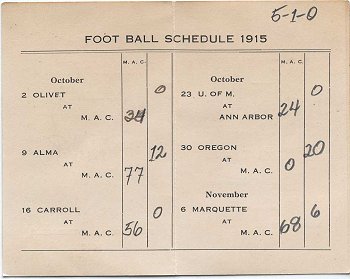 5-1-0
FOOT BALL SCHEDULE 1915
M. A. C.
October
2 OLIVET 0
AT
M. A. C. 34
9 ALMA 12
AT
M. A. C. 77
16 CARROLL 0
AT
M. A. C. 56
M. A. C.
October
23 U. OF M. 0
AT
ANN ARBOR 24
30 OREGON 20
AT
M. A. C. 0
November
6 MARQUETTE 6
AT
M. A. C. 68